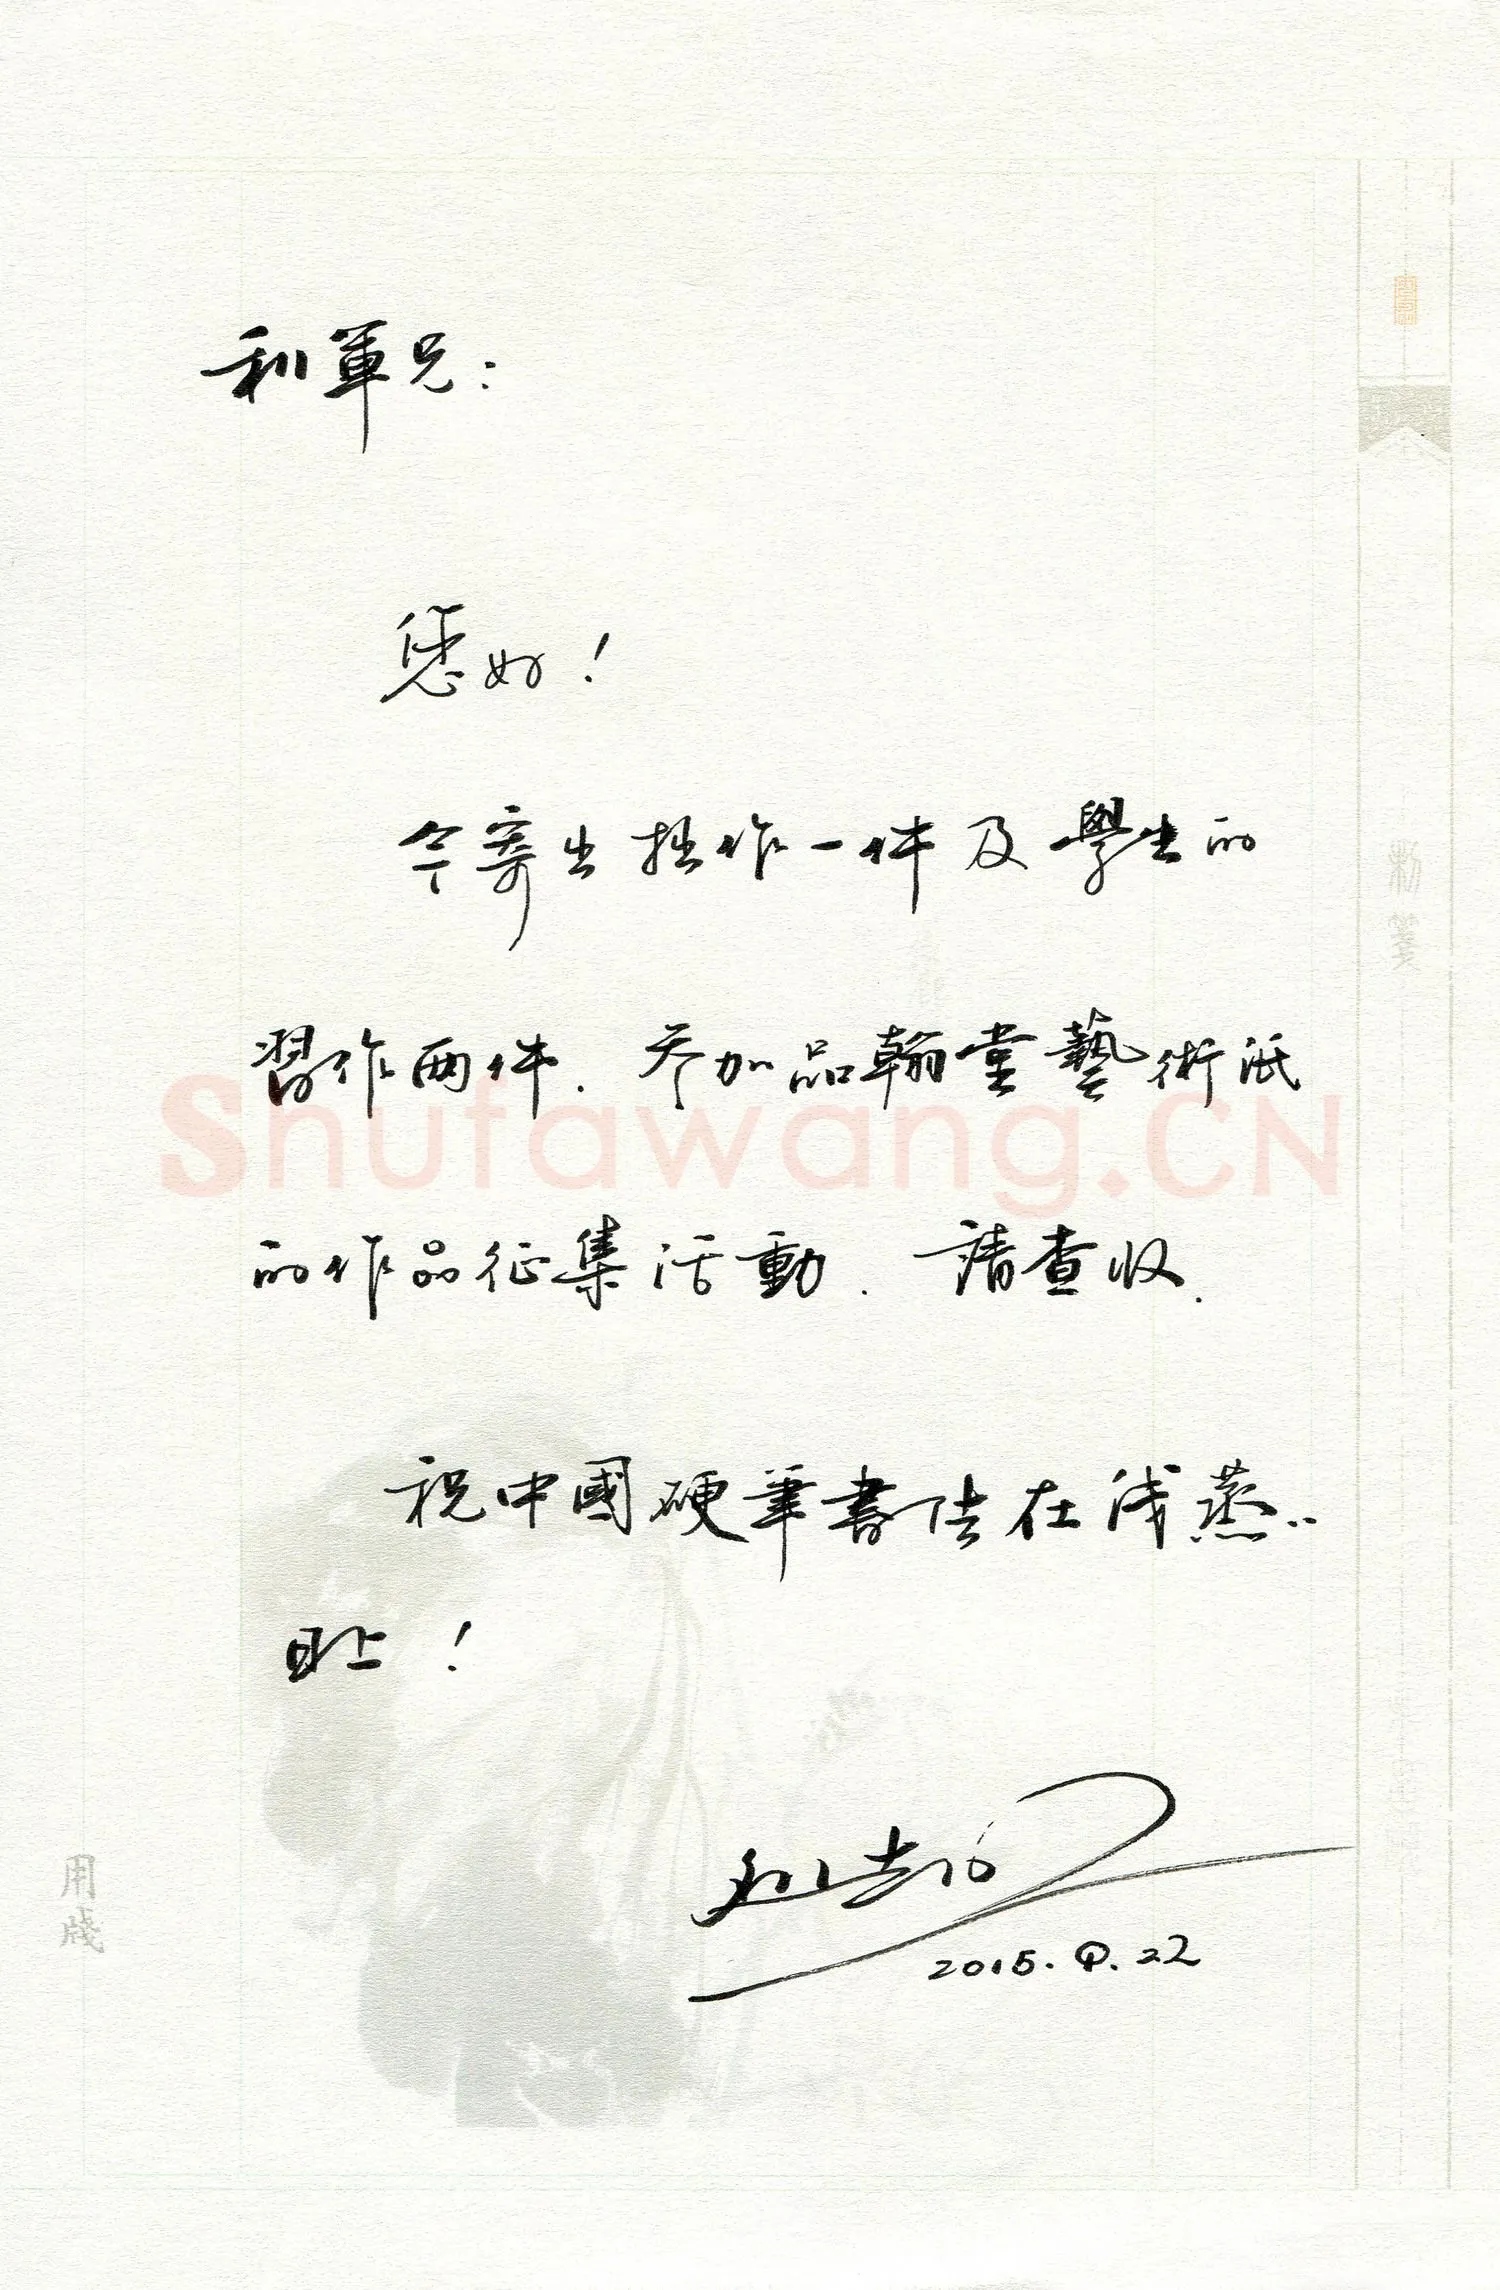 利軍兄：
您好！
今寄出拙作一件及學生的
習作两件．参加品翰堂藝術派
Shufawang.CN
的作品征集活動．請查收．
祝中國硬筆書法在线蒸‥
日上！
2015.9.22
用牋